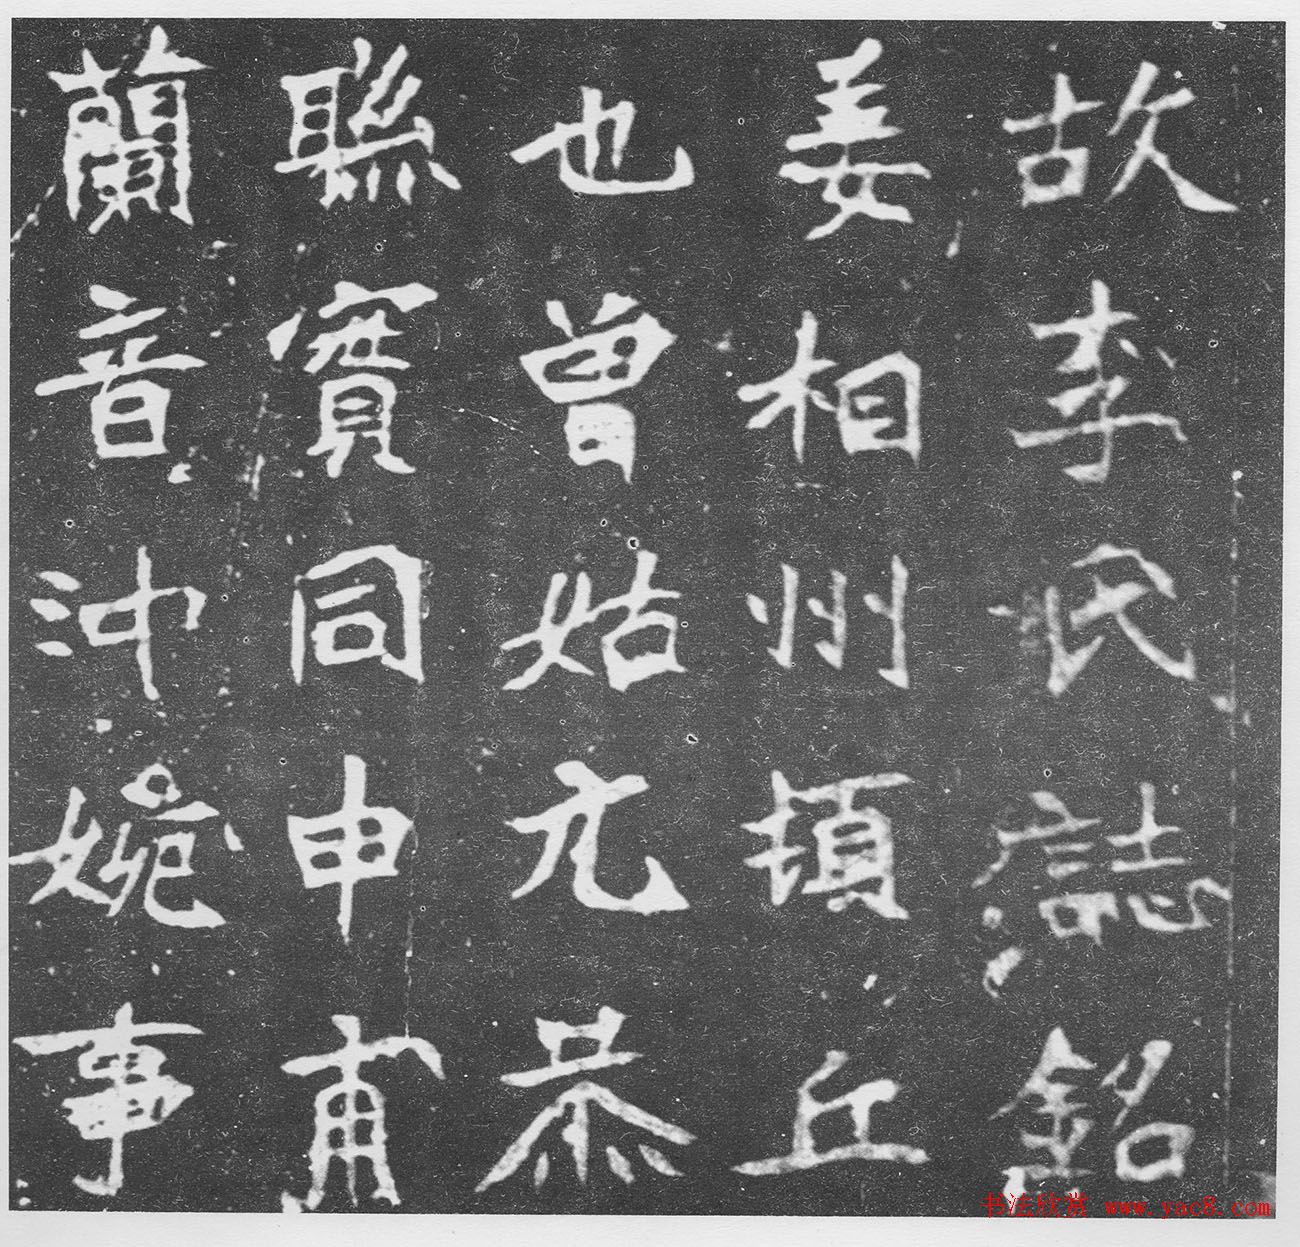 故李氏誌銘
姜相州頓丘
也曾姑尣恭
聯實同申甫
蘭音沖婉事
书法欣赏 www.yac8.com